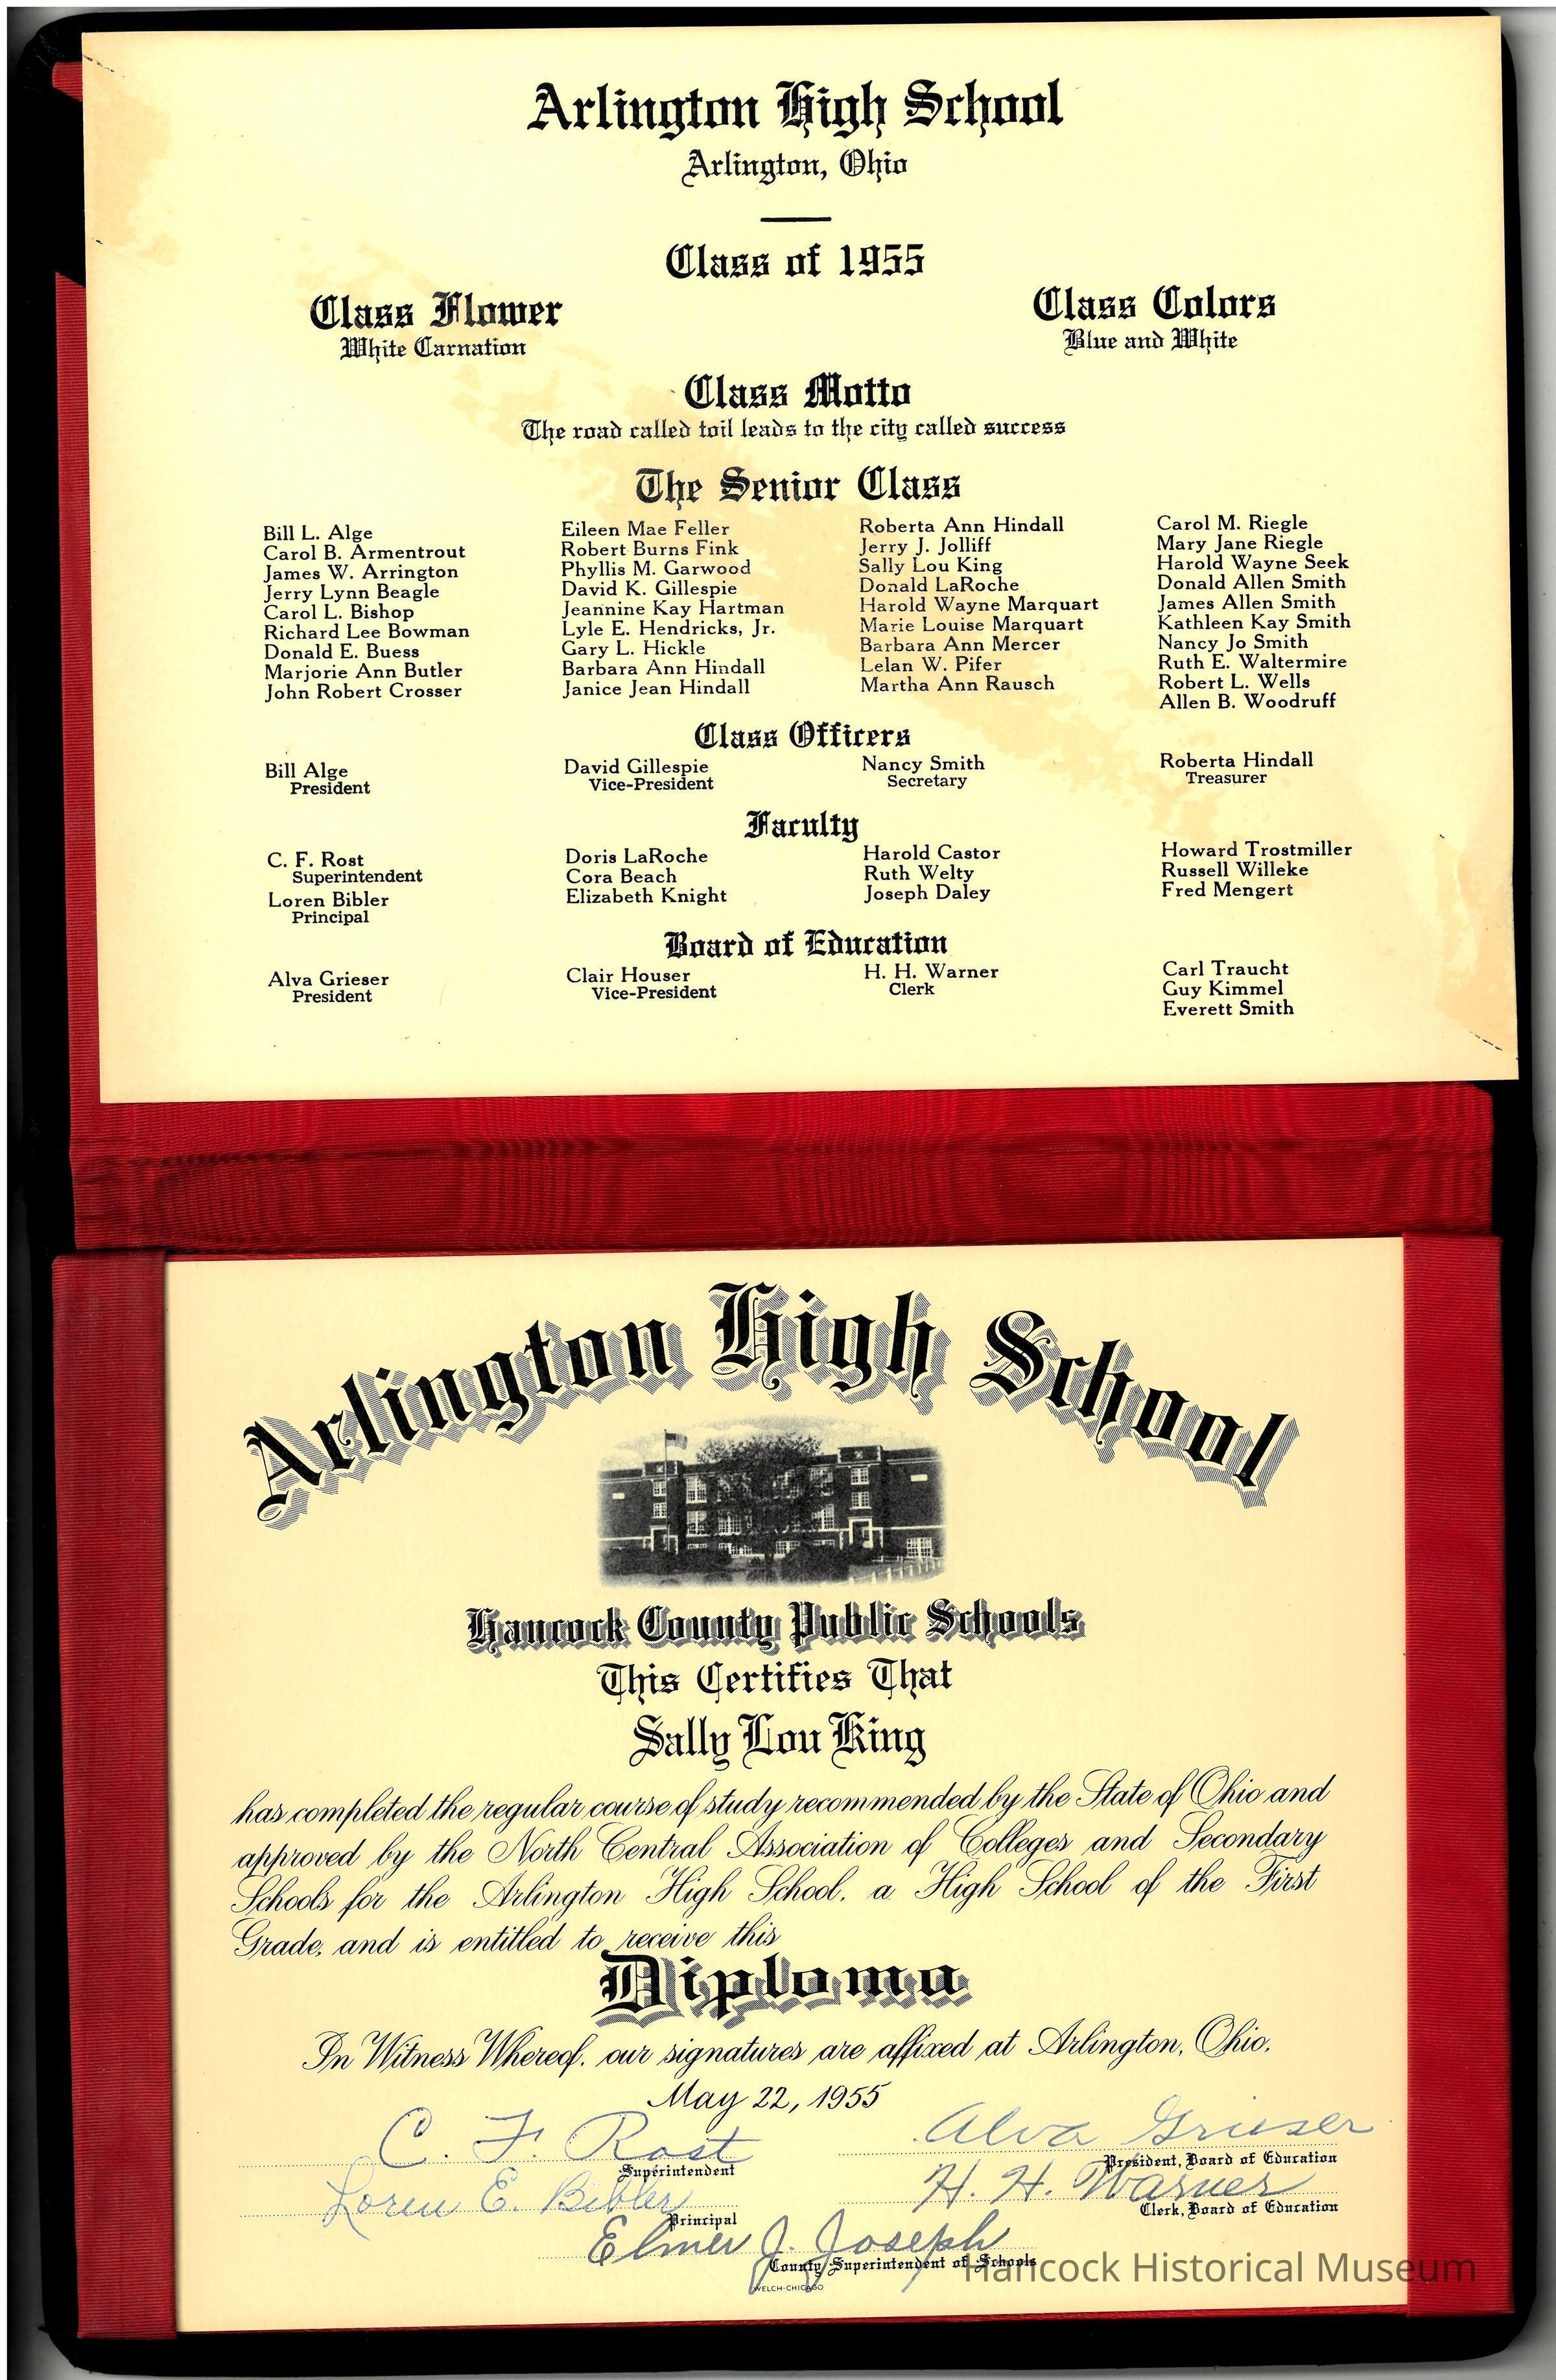 Arlington High School
Arlington, Ohio
Class of 1955
Class Flower
White Carnation
Class Colors
Blue and White
Class Motto
The road called toil leads to the city called success
The Senior Class
Bill L. Alge
Carol B. Armentrout
James W. Arrington
Jerry Lynn Beagle
Carol L. Bishop
Richard Lee Bowman
Donald E. Buess
Marjorie Ann Butler
John Robert Crosser
Eileen Mae Feller
Robert Burns Fink
Phyllis M. Garwood
David K. Gillespie
Jeannine Kay Hartman
Lyle E. Hendricks, Jr.
Gary L. Hickle
Barbara Ann Hindall
Janice Jean Hindall
Roberta Ann Hindall
Jerry J. Jolliff
Sally Lou King
Donald LaRoche
Harold Wayne Marquart
Marie Louise Marquart
Barbara Ann Mercer
Lelan W. Pifer
Martha Ann Rausch
Carol M. Riegle
Mary Jane Riegle
Harold Wayne Seek
Donald Allen Smith
James Allen Smith
Kathleen Kay Smith
Nancy Jo Smith
Ruth E. Waltermire
Robert L. Wells
Allen B. Woodruff
Class Officers
Bill Alge
President
David Gillespie
Vice-President
Nancy Smith
Secretary
Roberta Hindall
Treasurer
Faculty
C. F. Rost
Superintendent
Loren Bibler
Principal
Doris LaRoche
Cora Beach
Elizabeth Knight
Harold Castor
Ruth Welty
Joseph Daley
Howard Trostmiller
Russell Willeke
Fred Mengert
Board of Education
Alva Grieser
President
Clair Houser
Vice-President
H. H. Warner
Clerk
Carl Traucht
Guy Kimmel
Everett Smith
Arlington High School
Hancock County Public Schools
This Certifies That
Sally Lou King
has completed the regular course of study recommended by the State of Ohio and
approved by the North Central Association of Colleges and Secondary
Schools for the Arlington High School, a High School of the First
Grade, and is entitled to receive this
Diploma
In Witness Whereof, our signatures are affixed at Arlington, Ohio,
May 22, 1955
C. F. Rost
Superintendent
Alva Grieser
President, Board of Education
Loren E. Bibler
Principal
H. H. Warner
Clerk, Board of Education
Elmer J. Joseph
County Superintendent of Schools
WELCH-CHICAGO
Hancock Historical Museum